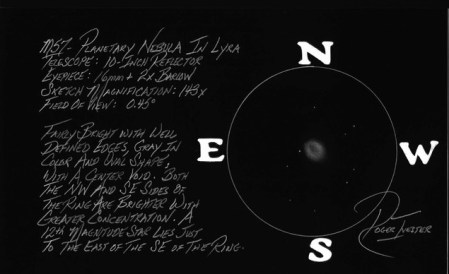 M57- Planetary Nebula In Lyra
Telescope: 10-Inch Reflector
Eyepiece: 16mm + 2x Barlow
Sketch Magnification: 143x
Field Of View: 0.45°
Fairly Bright with Well
Defined Edges, Gray In
Color And Oval Shape,
With A Center Void. Both
The NW And SE Sides Of
The Ring Are Brighter With
Greater Concentration. A
12th Magnitude Star Lies Just
To The East of the SE of The Ring.
N
E
W
S
Roger Ivester